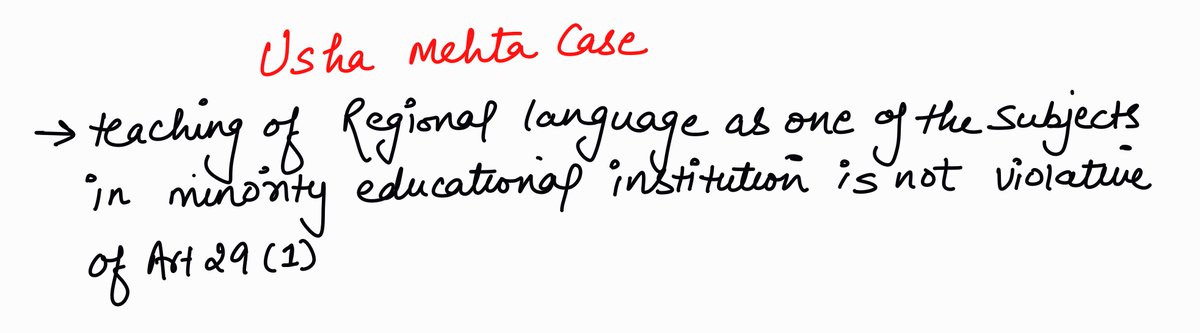 Usha Mehta Case
→ teaching of Regional language as one of the subjects
in minority educational institution is not violative
of Art 29 (1)